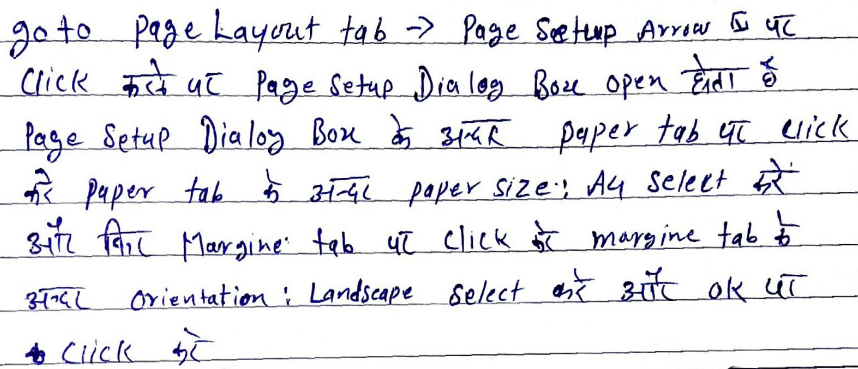 go to Page Layout tab → Page Setup Arrow पर
Click करने पर Page Setup Dialog Box open होता है
Page Setup Dialog Box के अन्दर paper tab पर click
करें paper tab के अन्दर paper size : A4 select करें
और फिर Margine tab पर click करें margine tab के
अन्दर orientation : Landscape select करें और ok पर
click करें